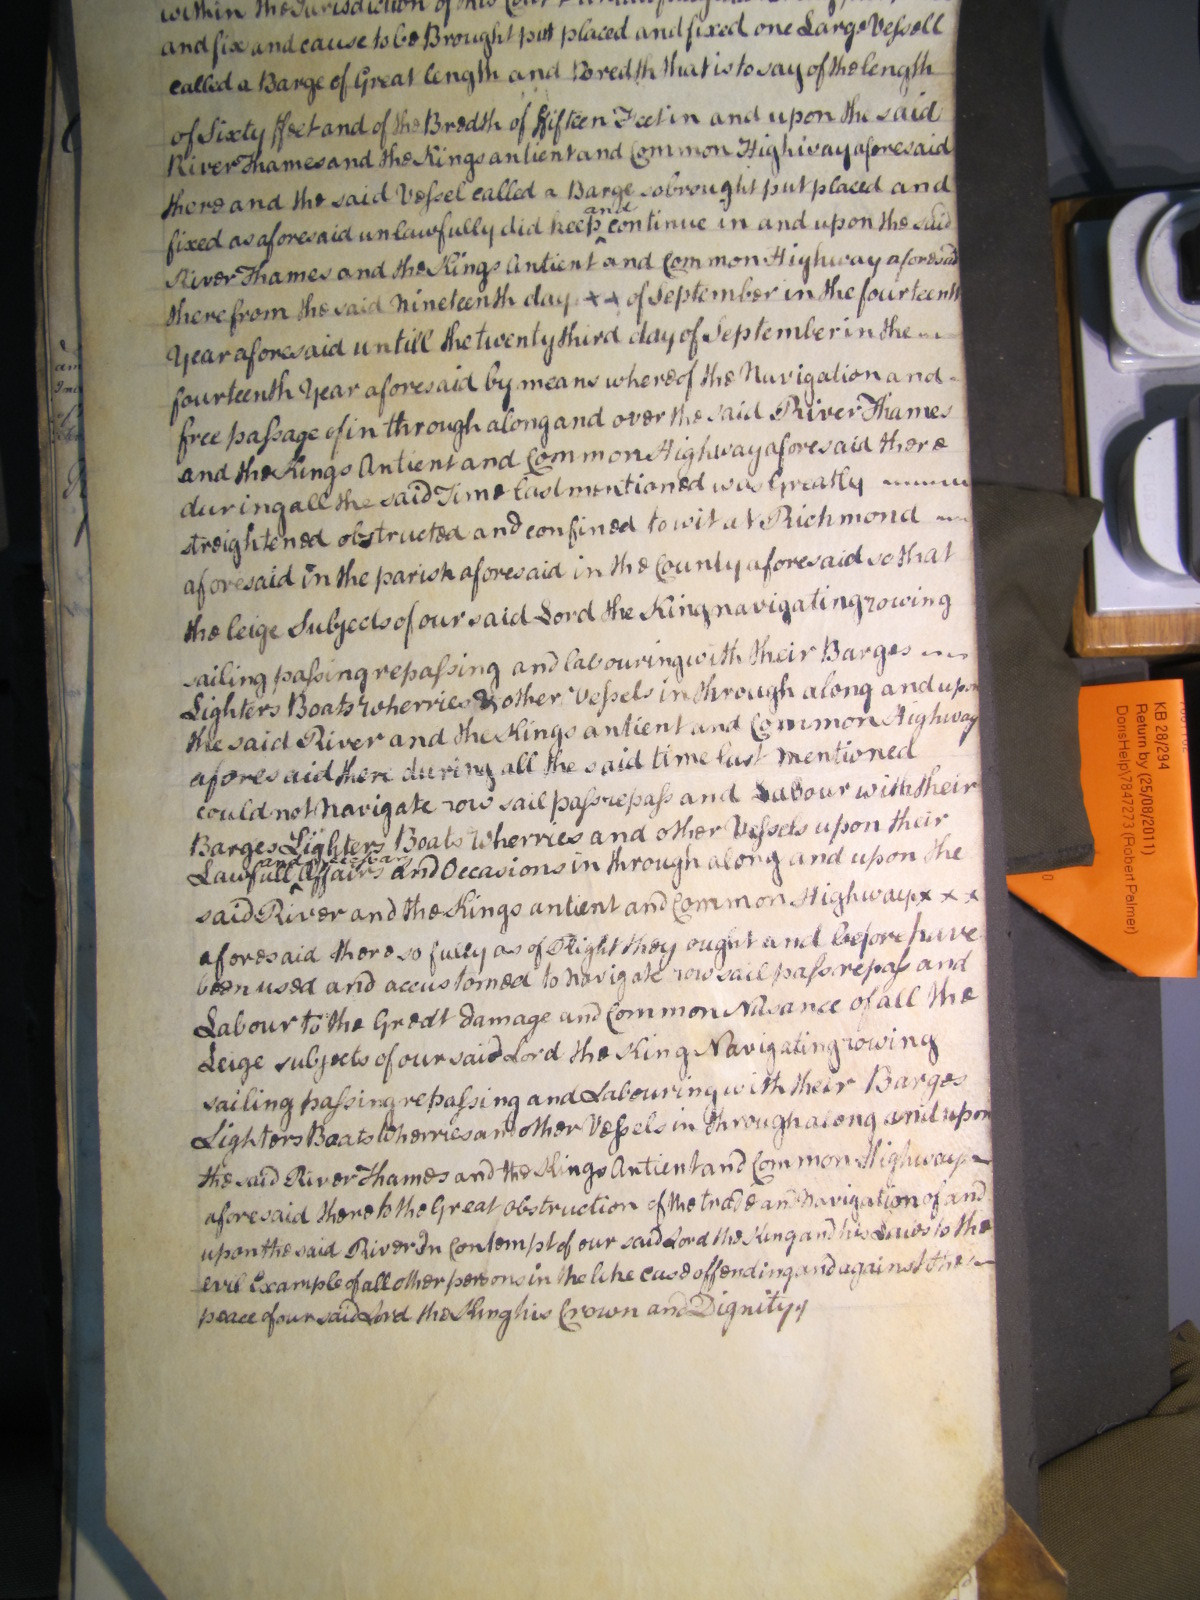 within the Jurisdiction of this Court
and fix and cause to be Brought put placed and fixed one Large Vessell
called a Barge of Great length and Bredth that is to say of the length
of Sixty ffeet and of the Bredth of fifteen Feet in and upon the said
River Thames and the Kings antient and Common Highway aforesaid
there and the said Vessel called a Barge so brought put placed and
fixed as aforesaid unlawfully did keep and continue in and upon the said
River Thames and the Kings Antient and Common Highway aforesaid
there from the said nineteenth day x x of September in the fourteenth
Year aforesaid untill the twenty third day of September in the
fourteenth Year aforesaid by means whereof the Navigation and
free passage of in through along and over the said River Thames
and the Kings Antient and Common Highway aforesaid there
during all the said Time last mentioned was Greatly
streightened obstructed and confined to wit at Richmond
aforesaid in the parish aforesaid in the County aforesaid so that
the leige Subjects of our said Lord the King navigating rowing
sailing passing repassing and labouring with their Barges
Lighters Boats wherries & other Vessels in through along and upon
the said River and the Kings antient and Common Highway
aforesaid there during all the said time last mentioned
could not Navigate row sail pass repass and Labour with their
Barges Lighters Boats Wherries and other Vessels upon their
Lawfull and necessary Affairs and Occasions in through along and upon the
said River and the Kings antient and Common Highway x x x
aforesaid there so fully as of Right they ought and before have
been used and accustomed to Navigate row sail pass repass and
Labour to the Great damage and Common Nusance of all the
Leige subjects of our said Lord the King Navigating rowing
sailing passing repassing and Labouring with their Barges
Lighters Boats Wherries and other Vessels in through along and upon
the said River Thames and the Kings Antient and Common Highway
aforesaid there to the Great obstruction of the trade and Navigation of and
upon the said River In Contempt of our said Lord the King and his Laws to the
evil Example of all other persons in the like case offending and against the
peace of our said Lord the King his Crown and Dignity
KB 28/294
Return by (25/08/2011)
DorisHelp\7847273 (Robert Palmer)